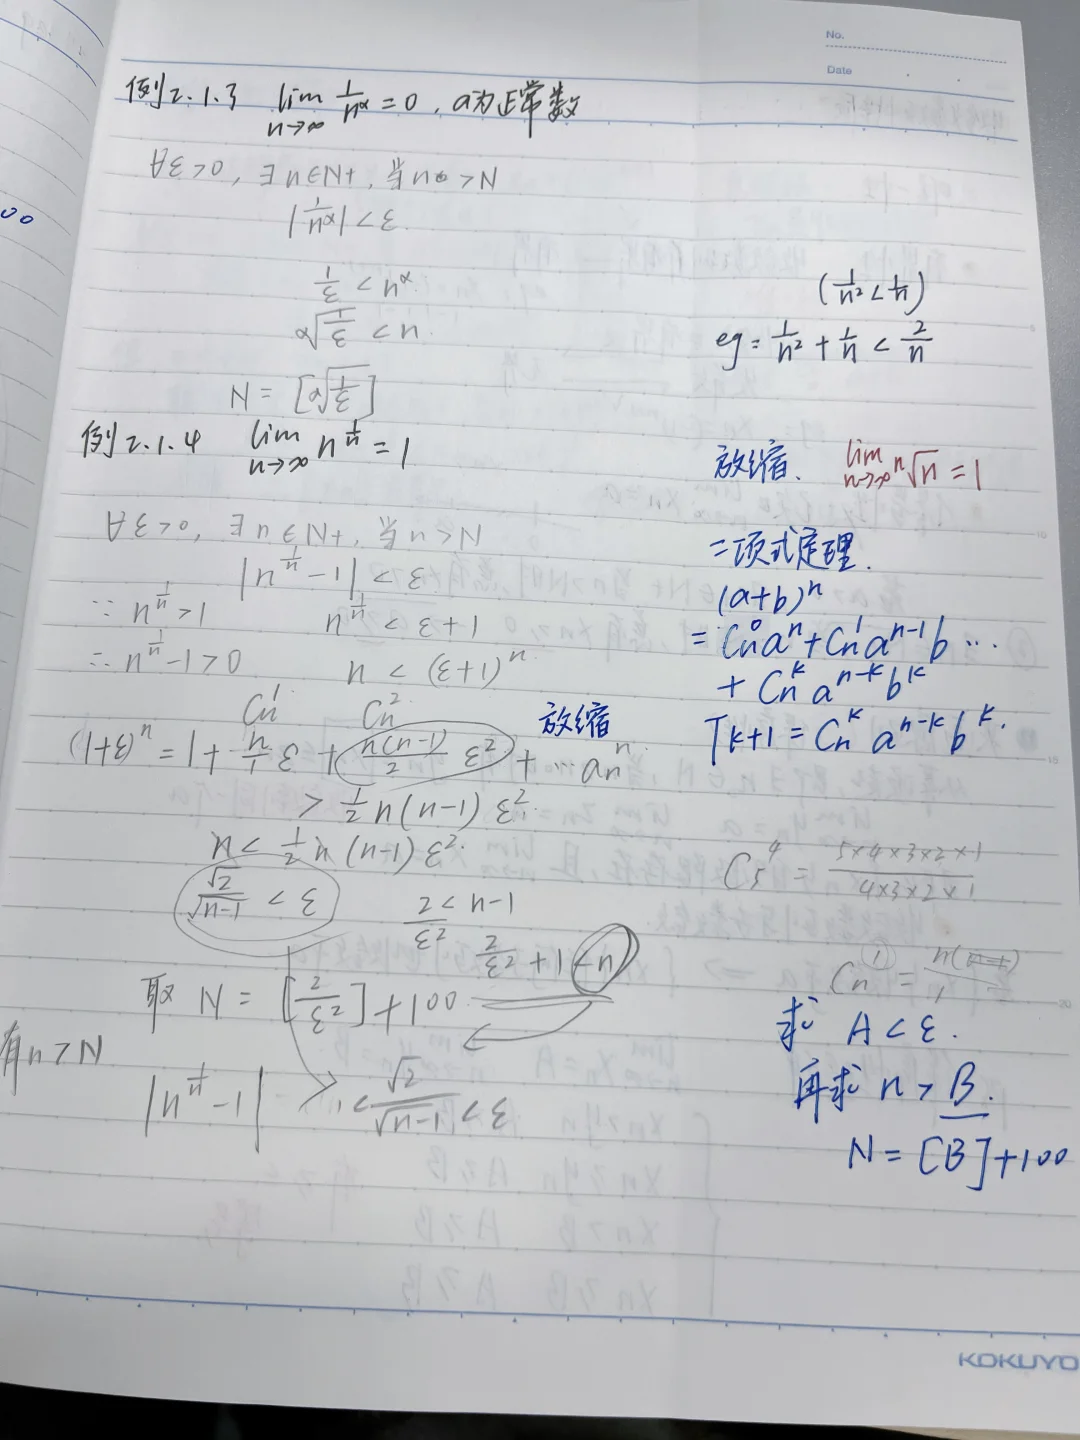 No.
Date
例2.1.3 lim n→∞ 1/n^α = 0, α为正常数
∀ε>0, ∃n∈N+, 当n>N
|1/n^α| < ε
1/ε < n^α
α√(1/ε) < n
N = [α√(1/ε)]
(1/n² < 1/n)
eg = 1/n² + 1/n < 2/n
例2.1.4 lim n→∞ n^(1/n) = 1
放缩. lim n→∞ n√n = 1
∀ε>0, ∃n∈N+, 当n>N
|n^(1/n) - 1| < ε
∵ n^(1/n) > 1
n^(1/n) < ε+1
∴ n^(1/n) - 1 > 0
n < (ε+1)^n
二项式定理.
(a+b)^n
= Cn^0 a^n + Cn^1 a^(n-1) b …
+ Cn^k a^(n-k) b^k
T k+1 = Cn^k a^(n-k) b^k.
Cn^1 Cn^2 放缩
(1+ε)^n = 1 + n/1 ε + n(n-1)/2 ε² + … an^n
> 1/2 n(n-1) ε²
n < 1/2 n (n-1) ε²
√2/√(n-1) < ε
2/ε² < n-1
2/ε² + 1 < n
C5^4 = 5×4×3×2×1 / 4×3×2×1
取 N = [2/ε²] + 100
有 n > N
|n^(1/n) - 1| < √2/√(n-1) < ε
求 A < ε.
再求 n > B.
N = [B] + 100
KOKUYO